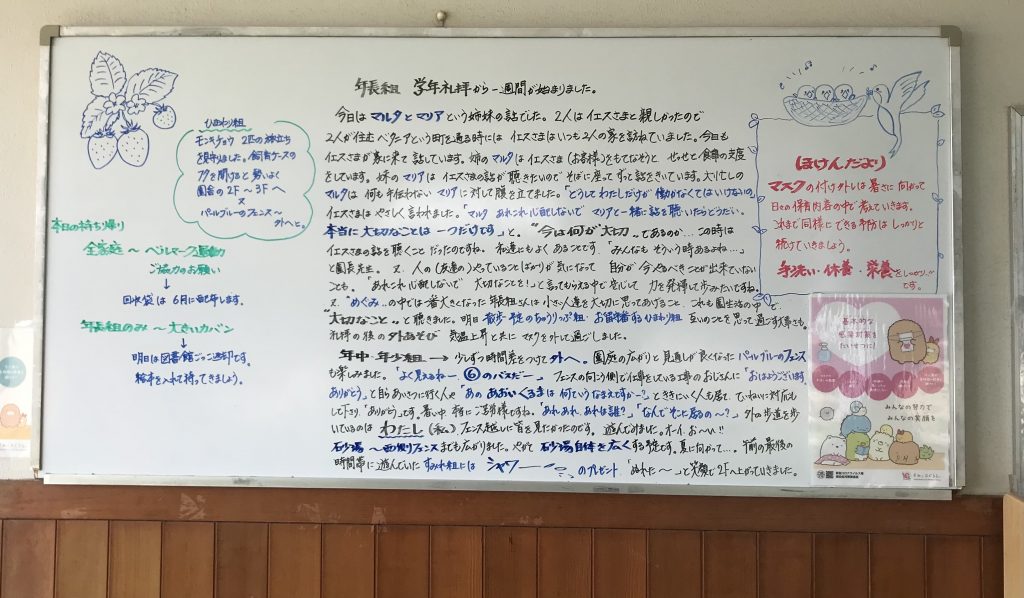 ひまわり組
モンキチョウ 2匹の旅立ち
を見守りました。飼育ケースの
フタを開けると 勢いよく
園舎の2F〜3Fへ
パールブルーのフェンス〜
外へと。
本日の持ち帰り
全家庭 〜 ベルマーク運動
ご協力のお願い
↓
回収袋は 6月に配布します。
年長組のみ 〜 大きいカバン
↓
明日は図書館ごっこ返却です。
絵本を入れて持ってきましょう。
年長組 学年礼拝から一週間が始まりました。
今日は マルタとマリア という姉妹の話でした。2人は イエスさまと 親しかったので
2人が住む ベタニア という町を通る時には イエスさまはいつも2人の家を訪ねていました。今日も
イエスさまが家に来て 話しています。姉のマルタは イエスさま(お客様)をもてなそうと せっせと食事の支度
をしています。妹の マリアは イエスさまの話が聴きたいので そばに座って ずっと話をきいています。大忙しの
マルタは 何も手伝わない マリアに対して 腹を立てました。「どうして わたしだけが 働かなくてはいけないの」
イエスさまは やさしく 言われました。「マルタ あれこれ心配しないで マリアと一緒に話を聴いたらどうだい。
本当に大切なことは 一つだけです」と。"今は何が大切"であるのか…この時は
イエスさまの話を聴くこと だったのですね。 私達にもよくあることです。「みんなも そういう時あるよね…」
と園長先生。 又、人の(友達の)やっていることばかりが 気になって 自分が今やるべきことが出来ていない
ことも。「あれこれ心配しないで 大切なことを!」と言ってもらえる中で 安心して 力を発揮して歩みたいですね。
又、"めぐみ"の中では一番大きくなった 年長組さんは 小さい人達を大切に思ってあげること これも園生活の中で
"大切なこと"と 聴きました。明日 散歩予定のちゅうりっぷ組 お留守番するひまわり組 互いのことを思って過ごす大事さも。
礼拝の後の外あそび 気温上昇と共に マスクを外して過ごしました。
年中・年少組 → 少しずつ時間差をつけて 外へ。 園庭の広がりと 見通しが良くなった パールブルーのフェンス
も楽しみました。「よく見えるねー ⑥のバスだー」 フェンスの向こう側で仕事をしている工事のおじさんに「おはようございます。
ありがとう」と 自らあいさつに行く人や「あの あおいくるまは 何ていうなまえですかー?」ときに行く人も居て ていねいに対応も
して下り「ありがとう」です。暑い中 朝に ご苦労様ですね。「あれあれ、あれは誰?」「なんでそこに居るの〜?」 外の歩道を歩
いているのは わたし(私)。フェンス越しに 皆を見たかったのです。遊んでみました。オーイ、おーい!!
砂場 〜 西側フェンスまでも広がりました。やがて 砂場自体を広くする予定です。夏に向かって…。午前の最後の
時間帯に 遊んでいた すみれ組には シャワー のプレゼント「ぬれた〜」と笑顔で2Fへ上がっていきました。
ほけんだより
マスクの付け外しは 暑さに向かって
日々の保育内容の中で 考えていきます。
これまで同様に できる予防は しっかりと
続けていきましょう。
手洗い・休養・栄養をしっかり!!
です。
基本的な
感染対策を
たいせつに!
みんなの努力で
みんなの笑顔を